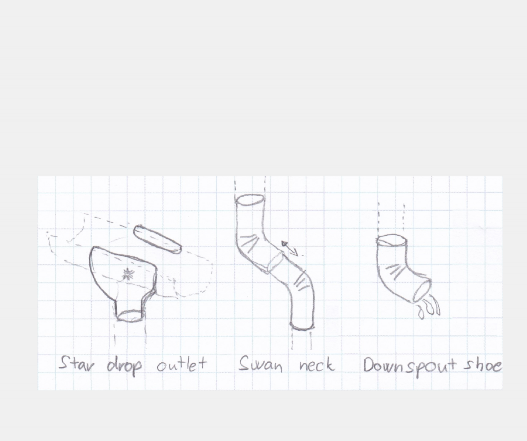 Star drop outlet
Swan neck
Downspout shoe